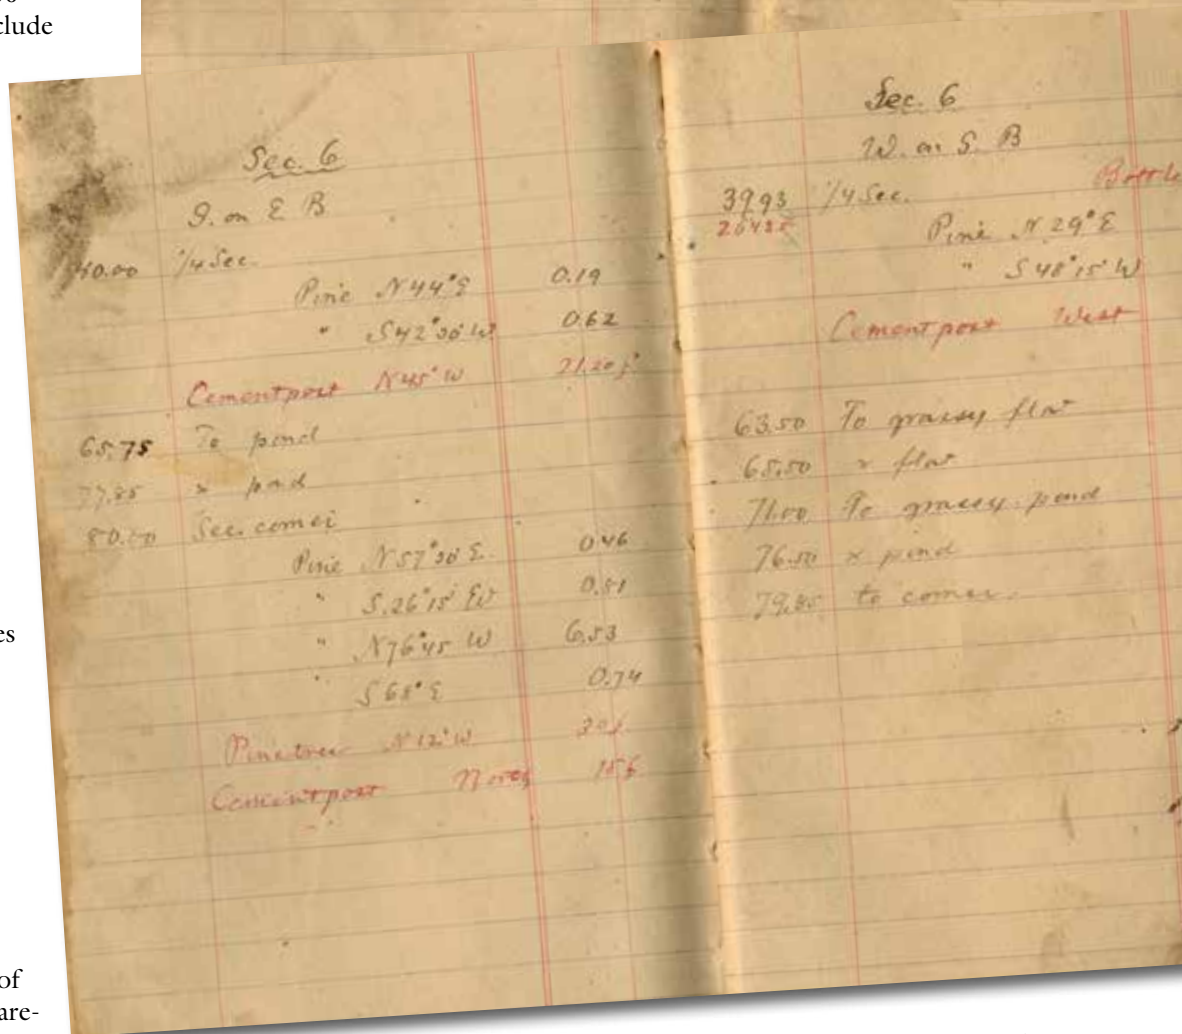 clude
Sec. 6
S. on E B
40.00 1/4 Sec.
Pine N44°E 0.19
" S42°30'W 0.62
Cementpost N45°W 21.20
65.75 To pond
77.85 x pond
80.00 Sec. corner
Pine N57°30'E. 0.46
" S.26°15' W 0.51
" N76°45 W 6.53
" S68°E 0.74
Pinetree N12°W
Cementpost North 156
Sec. 6
W. on S. B
3993 1/4 Sec. Bottle
Pine N29°E
" S48°15'W
Cementpost West
63.50 To grassy flat
65.50 x flat
71.00 To grassy pond
76.50 x pond
79.85 to corner.
es
of
are-